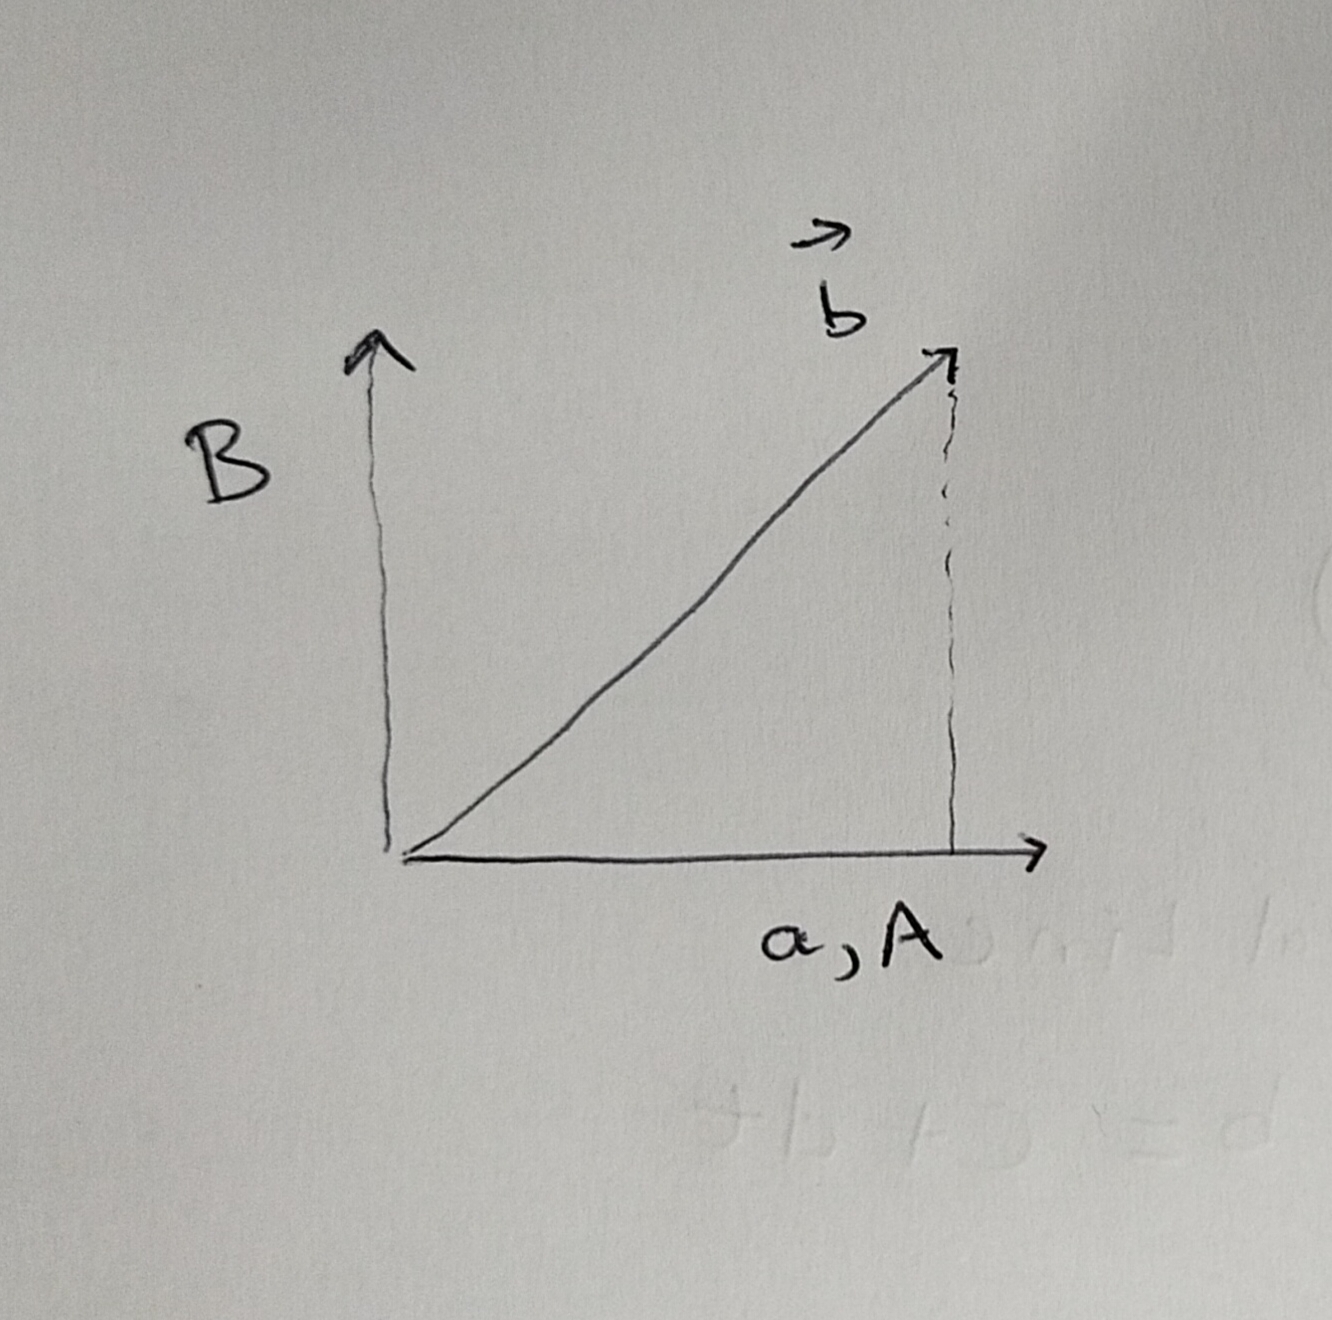 b⃗
B
a, A